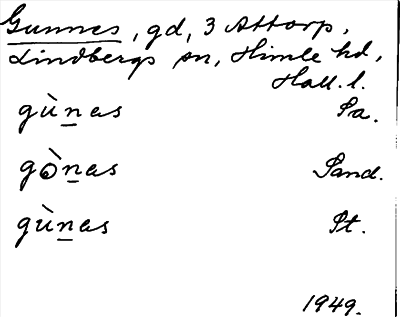 Gunnes, gd, 3 Attorp,
Lindbergs sn, Himle hd,
Hall. l.
gùnas Sa.
gònas Sand.
gùnas St.
1949.